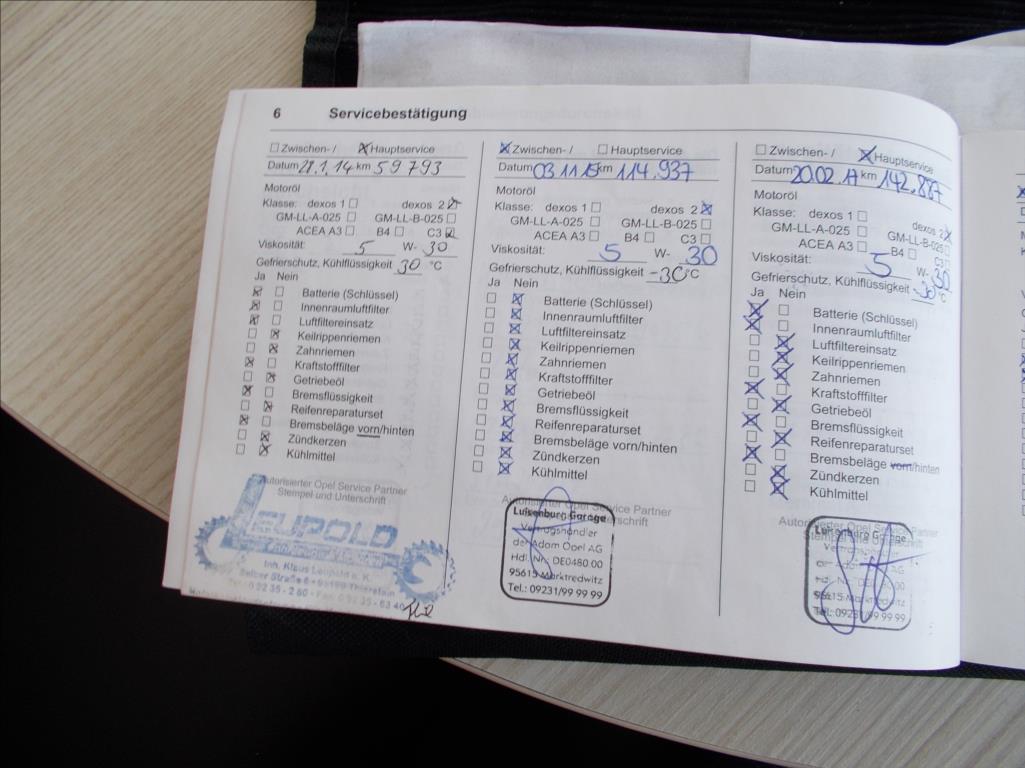 6 Servicebestätigung
Zwischen- / Hauptservice
Datum 28.1.14 km 59793
Motoröl
Klasse: dexos 1 dexos 2
GM-LL-A-025 GM-LL-B-025
ACEA A3 B4 C3
Viskosität: 5 W- 30
Gefrierschutz, Kühlflüssigkeit 30 °C
Ja Nein
Batterie (Schlüssel)
Innenraumluftfilter
Luftfiltereinsatz
Keilrippenriemen
Zahnriemen
Kraftstofffilter
Getriebeöl
Bremsflüssigkeit
Reifenreparaturset
Bremsbeläge vorn/hinten
Zündkerzen
Kühlmittel
Autorisierter Opel Service Partner
Stempel und Unterschrift
LEUPOLD
Inh. Klaus Leupold e. K.
Selber Straße 6 • 95199 Thierstein
Zwischen- / Hauptservice
Datum 03 11 15 km 114.937
Motoröl
Klasse: dexos 1 dexos 2
GM-LL-A-025 GM-LL-B-025
ACEA A3 B4 C3
Viskosität: 5 W- 30
Gefrierschutz, Kühlflüssigkeit -30 °C
Ja Nein
Batterie (Schlüssel)
Innenraumluftfilter
Luftfiltereinsatz
Keilrippenriemen
Zahnriemen
Kraftstofffilter
Getriebeöl
Bremsflüssigkeit
Reifenreparaturset
Bremsbeläge vorn/hinten
Zündkerzen
Kühlmittel
Autorisierter Opel Service Partner
Luisenburg Garage
Vertragshändler
der Adam Opel AG
Hdl. Nr.: DE0480.00
95615 Marktredwitz
Tel.: 09231/99 99 99
Zwischen- / Hauptservice
Datum 20.02.17 km 142.887
Motoröl
Klasse: dexos 1 dexos 2
GM-LL-A-025 GM-LL-B-025
ACEA A3 B4 C3
Viskosität: 5 W- 30
Gefrierschutz, Kühlflüssigkeit -30 °C
Ja Nein
Batterie (Schlüssel)
Innenraumluftfilter
Luftfiltereinsatz
Keilrippenriemen
Zahnriemen
Kraftstofffilter
Getriebeöl
Bremsflüssigkeit
Reifenreparaturset
Bremsbeläge vorn/hinten
Zündkerzen
Kühlmittel
Autorisierter Opel Service Partner
Luisenburg Garage
95615 Marktredwitz
Tel.: 09231/99 99 99